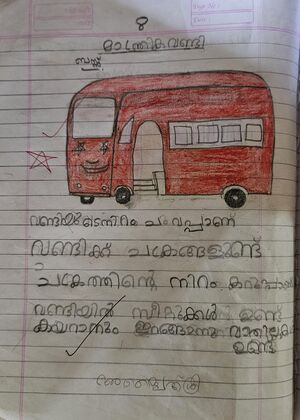 8
മാന്ത്രികവണ്ടി
ബസ്സ്
വണ്ടിയുടെ നിറം ചുവപ്പാണ്
വണ്ടിക്ക് ചക്രങ്ങളുണ്ട്
ചക്രത്തിന്റെ നിറം കറുപ്പാണ്
വണ്ടിയിൽ സീറ്റുകൾ ഉണ്ട്
കയറാനും ഇറങ്ങാനും വാതിലുകൾ
ഉണ്ട്